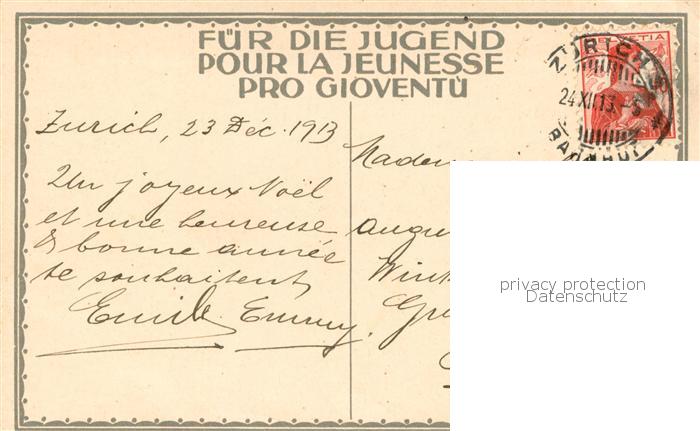 FÜR DIE JUGEND
POUR LA JEUNESSE
PRO GIOVENTÙ
HELVETIA
ZÜRICH
24 XII 13.
BAHNHOF
Zurich, 23 Déc. 1913
Un joyeux Noël
et une heureuse
& bonne année
te souhaitent
Emile Emmy.
Madem
augu
Wint
Gr
privacy protection
Datenschutz